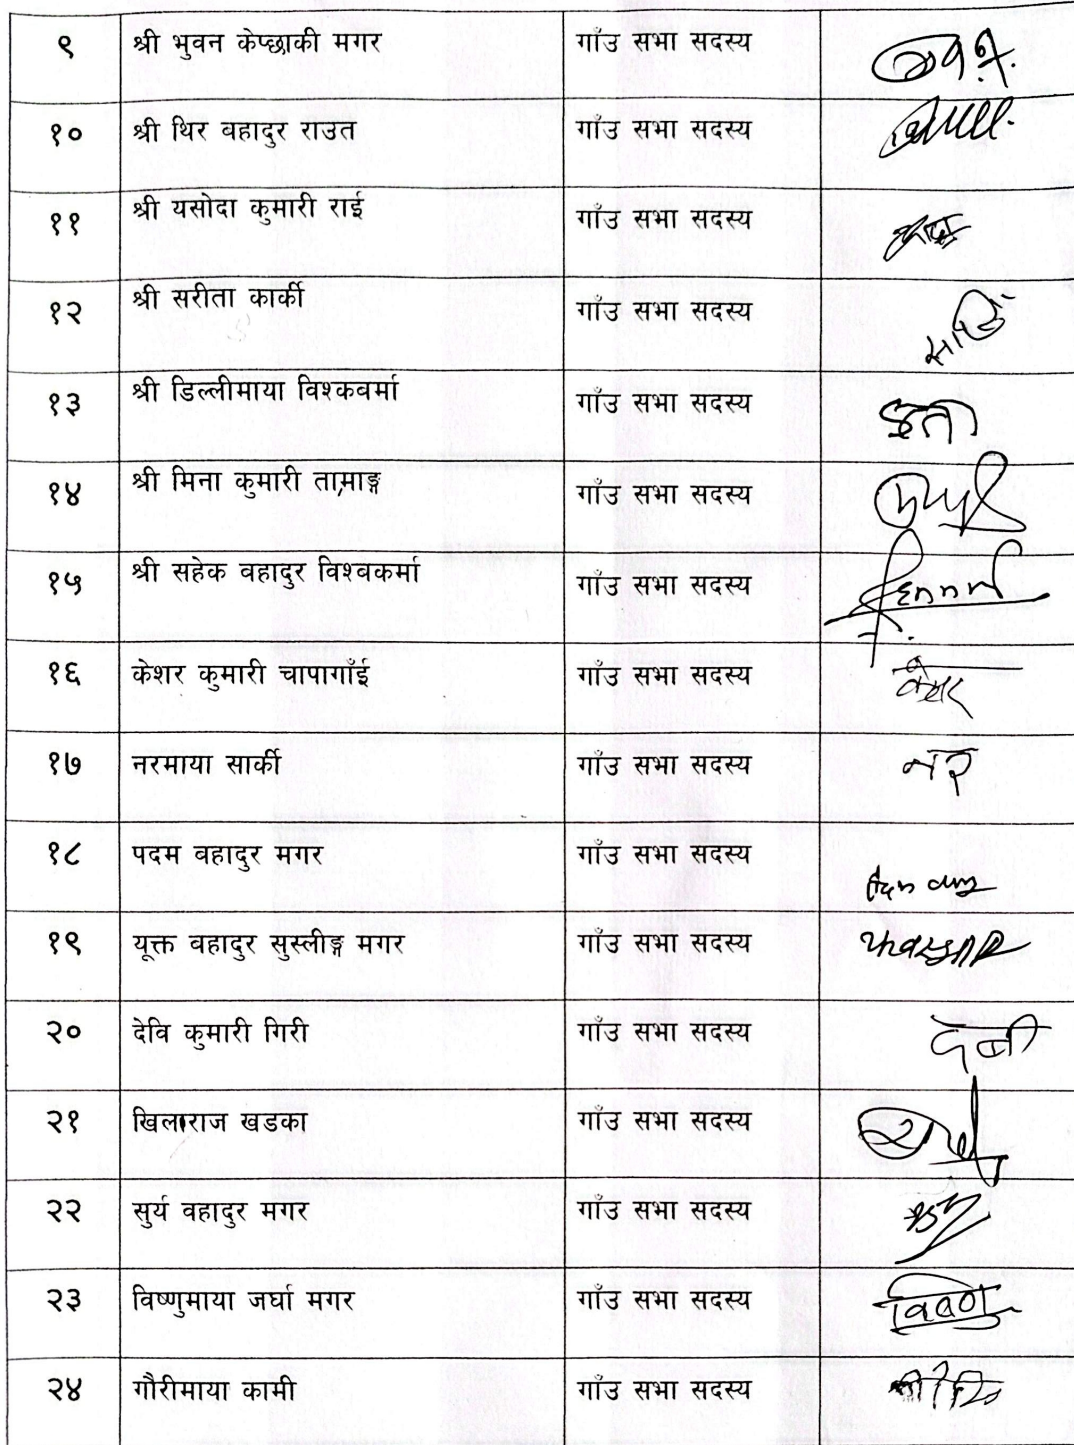 ९ श्री भुवन केप्छाकी मगर गाँउ सभा सदस्य
१० श्री थिर वहादुर राउत गाँउ सभा सदस्य
११ श्री यसोदा कुमारी राई गाँउ सभा सदस्य
१२ श्री सरीता कार्की गाँउ सभा सदस्य
१३ श्री डिल्लीमाया विश्कबर्मा गाँउ सभा सदस्य
१४ श्री मिना कुमारी तामाङ्ग गाँउ सभा सदस्य
१५ श्री सहेक वहादुर विश्वकर्मा गाँउ सभा सदस्य
१६ केशर कुमारी चापागाँई गाँउ सभा सदस्य केशर
१७ नरमाया सार्की गाँउ सभा सदस्य नर
१८ पदम वहादुर मगर गाँउ सभा सदस्य
१९ यूक्त वहादुर सुस्लीङ्ग मगर गाँउ सभा सदस्य
२० देवि कुमारी गिरी गाँउ सभा सदस्य देवी
२१ खिलाराज खडका गाँउ सभा सदस्य
२२ सुर्य वहादुर मगर गाँउ सभा सदस्य
२३ विष्णुमाया जर्घा मगर गाँउ सभा सदस्य विष्णु
२४ गौरीमाया कामी गाँउ सभा सदस्य